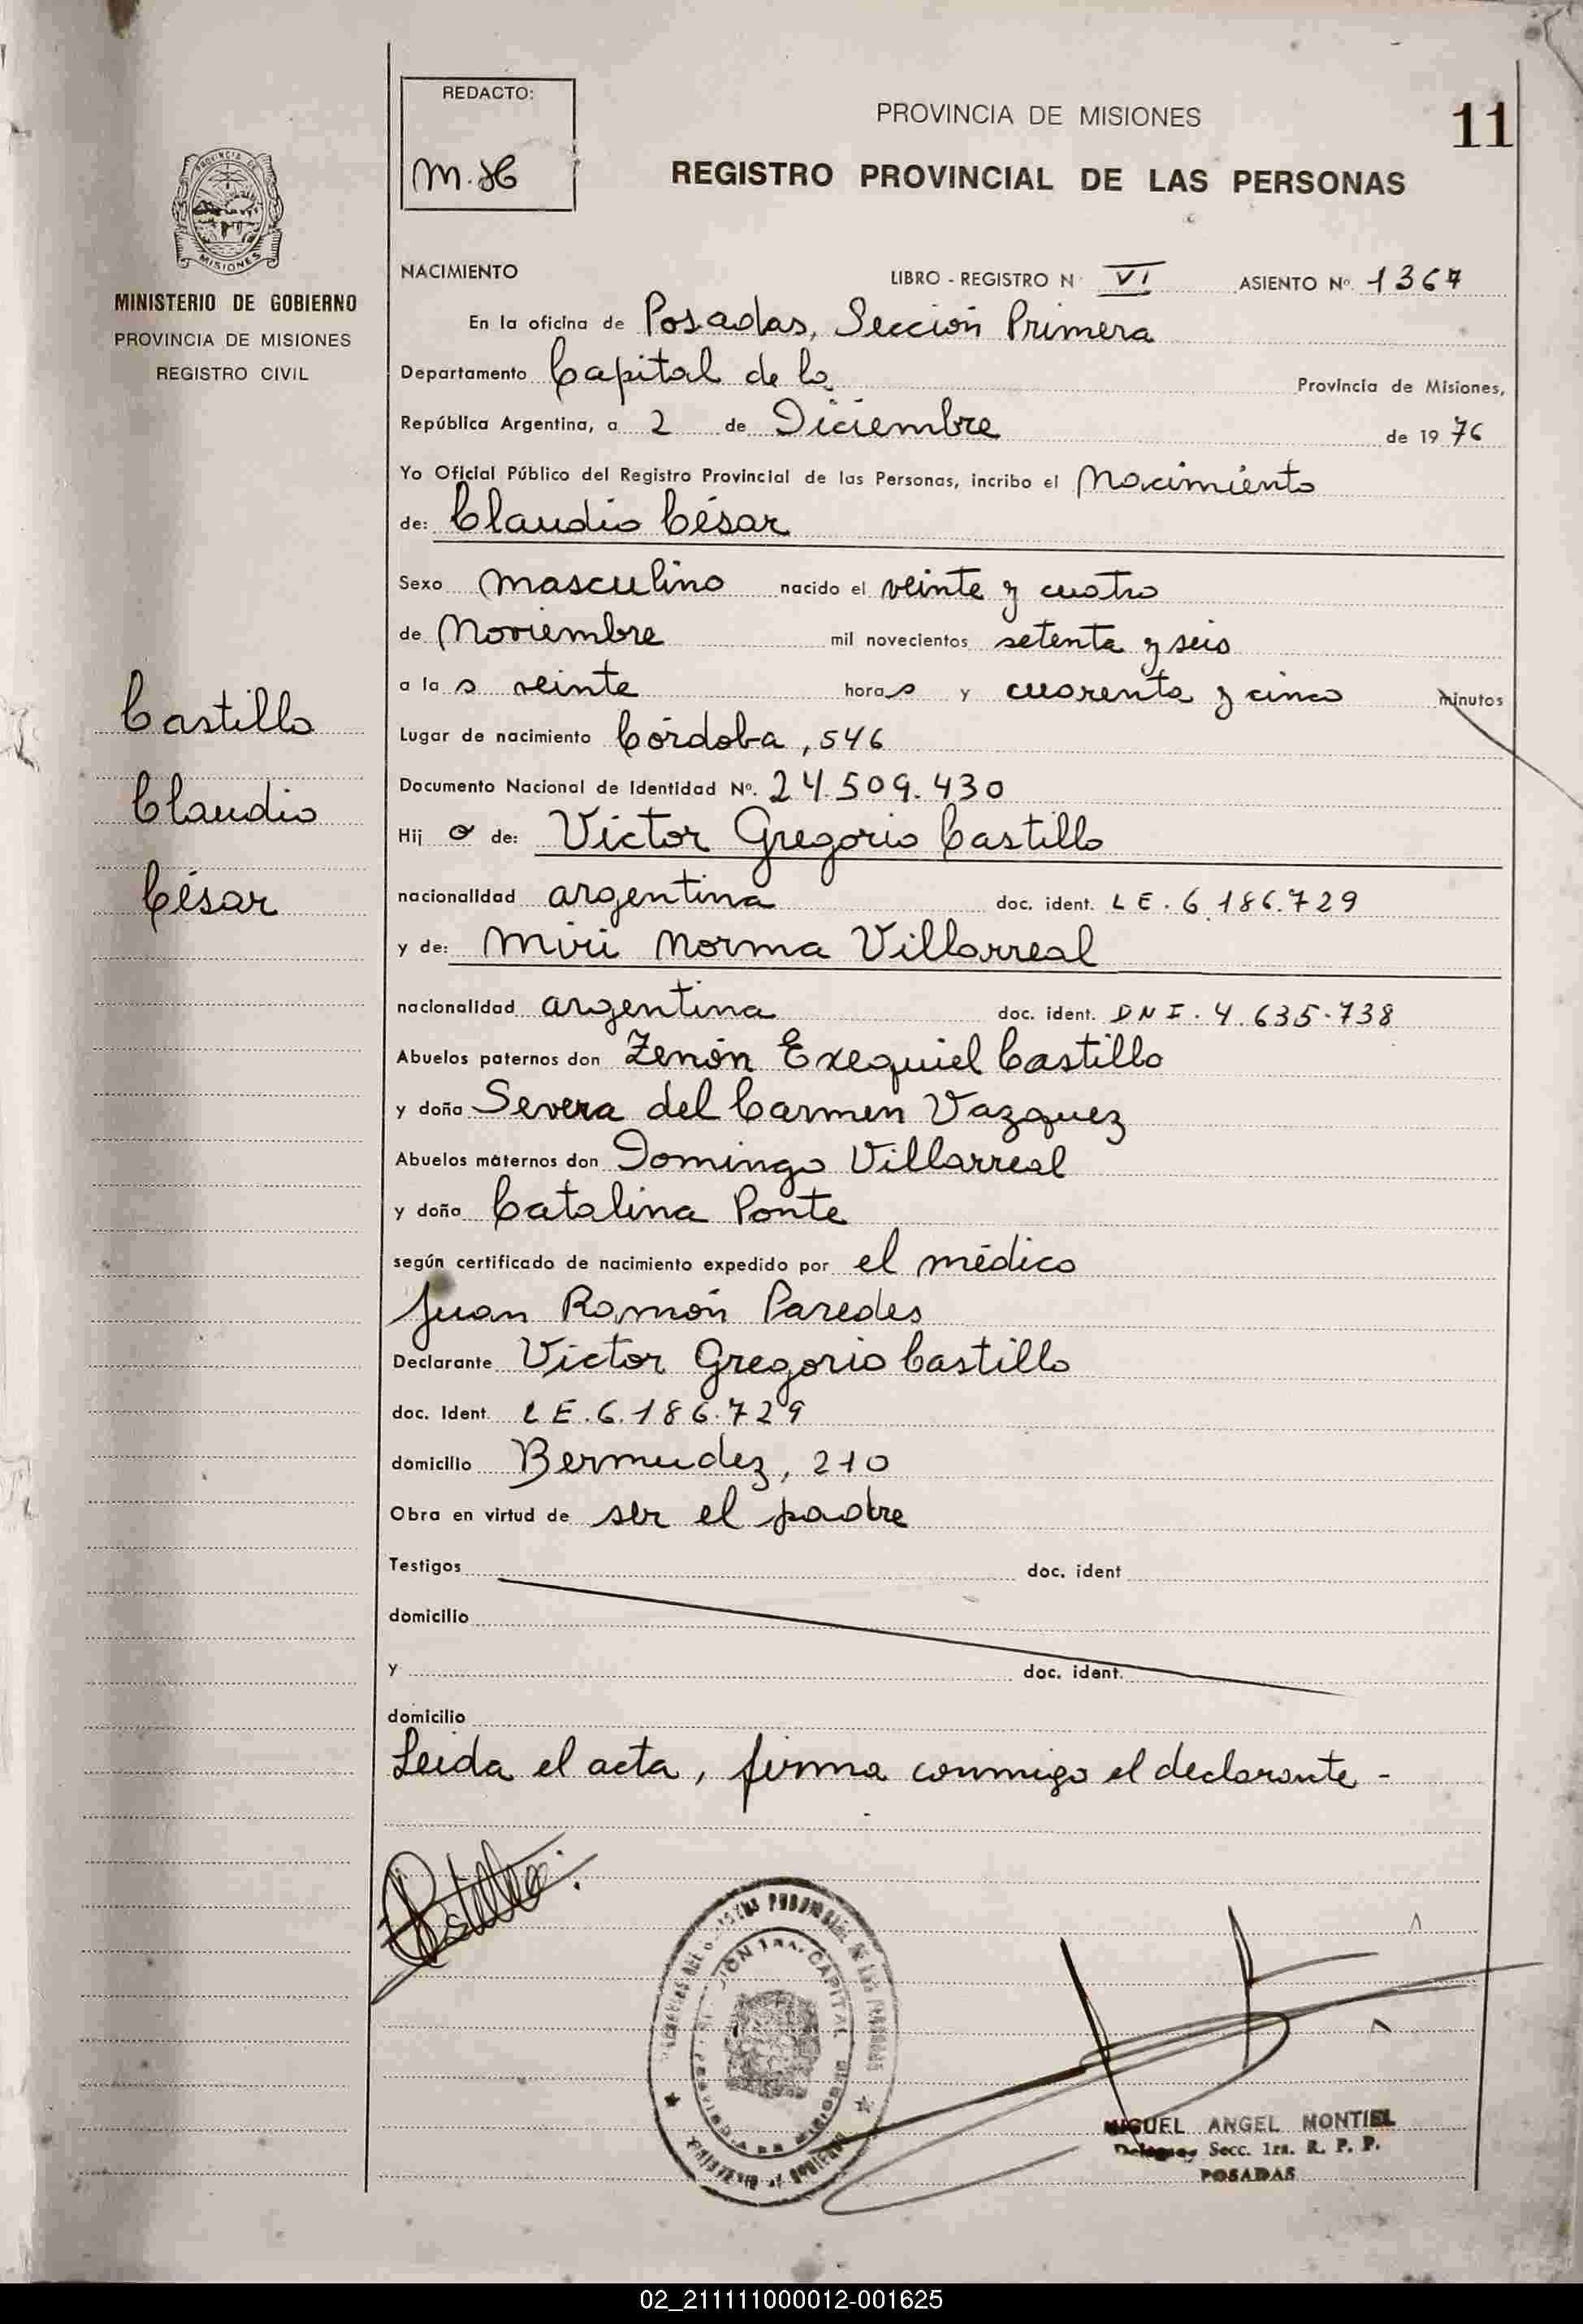 REDACTO:
M.H
PROVINCIA DE MISIONES
11
REGISTRO PROVINCIAL DE LAS PERSONAS
PROVINCIA DE
MISIONES
MINISTERIO DE GOBIERNO
PROVINCIA DE MISIONES
REGISTRO CIVIL
NACIMIENTO LIBRO - REGISTRO N VI ASIENTO Nº. 1367
En la oficina de Posadas, Sección Primera
Departamento Capital de la Provincia de Misiones,
República Argentina, a 2 de Diciembre de 19 76
Yo Oficial Público del Registro Provincial de las Personas, incribo el Nacimiento
de: Claudio César
Sexo masculino nacido el veinte y cuatro
de Noviembre mil novecientos setenta y seis
a la s veinte horas y cuarenta y cinco minutos
Lugar de nacimiento Córdoba, 546
Documento Nacional de Identidad Nº. 24.509.430
Hij o de: Víctor Gregorio Castillo
nacionalidad argentina doc. ident. LE. 6.186.729
y de: Miri Norma Villarreal
nacionalidad argentina doc. ident. DNI. 4.635.738
Abuelos paternos don Zenón Exequiel Castillo
y doña Severa del Carmen Vazquez
Abuelos maternos don Domingo Villarreal
y doña Catalina Ponte
según certificado de nacimiento expedido por el médico
Juan Ramón Paredes
Declarante Víctor Gregorio Castillo
doc. Ident. LE. 6.186.729
domicilio Bermudez, 210
Obra en virtud de ser el padre
Testigos doc. ident
domicilio
y doc. ident.
domicilio
Leida el acta, firma conmigo el declarante -
Castillo
Claudio
César
Castillo
SECCIÓN 1ra. CAPITAL
PROVINCIA DE MISIONES
MINISTERIO DE GOBIERNO
MIGUEL ANGEL MONTIEL
Secc. 1ra. R. P. P.
POSADAS
02_211111000012-001625